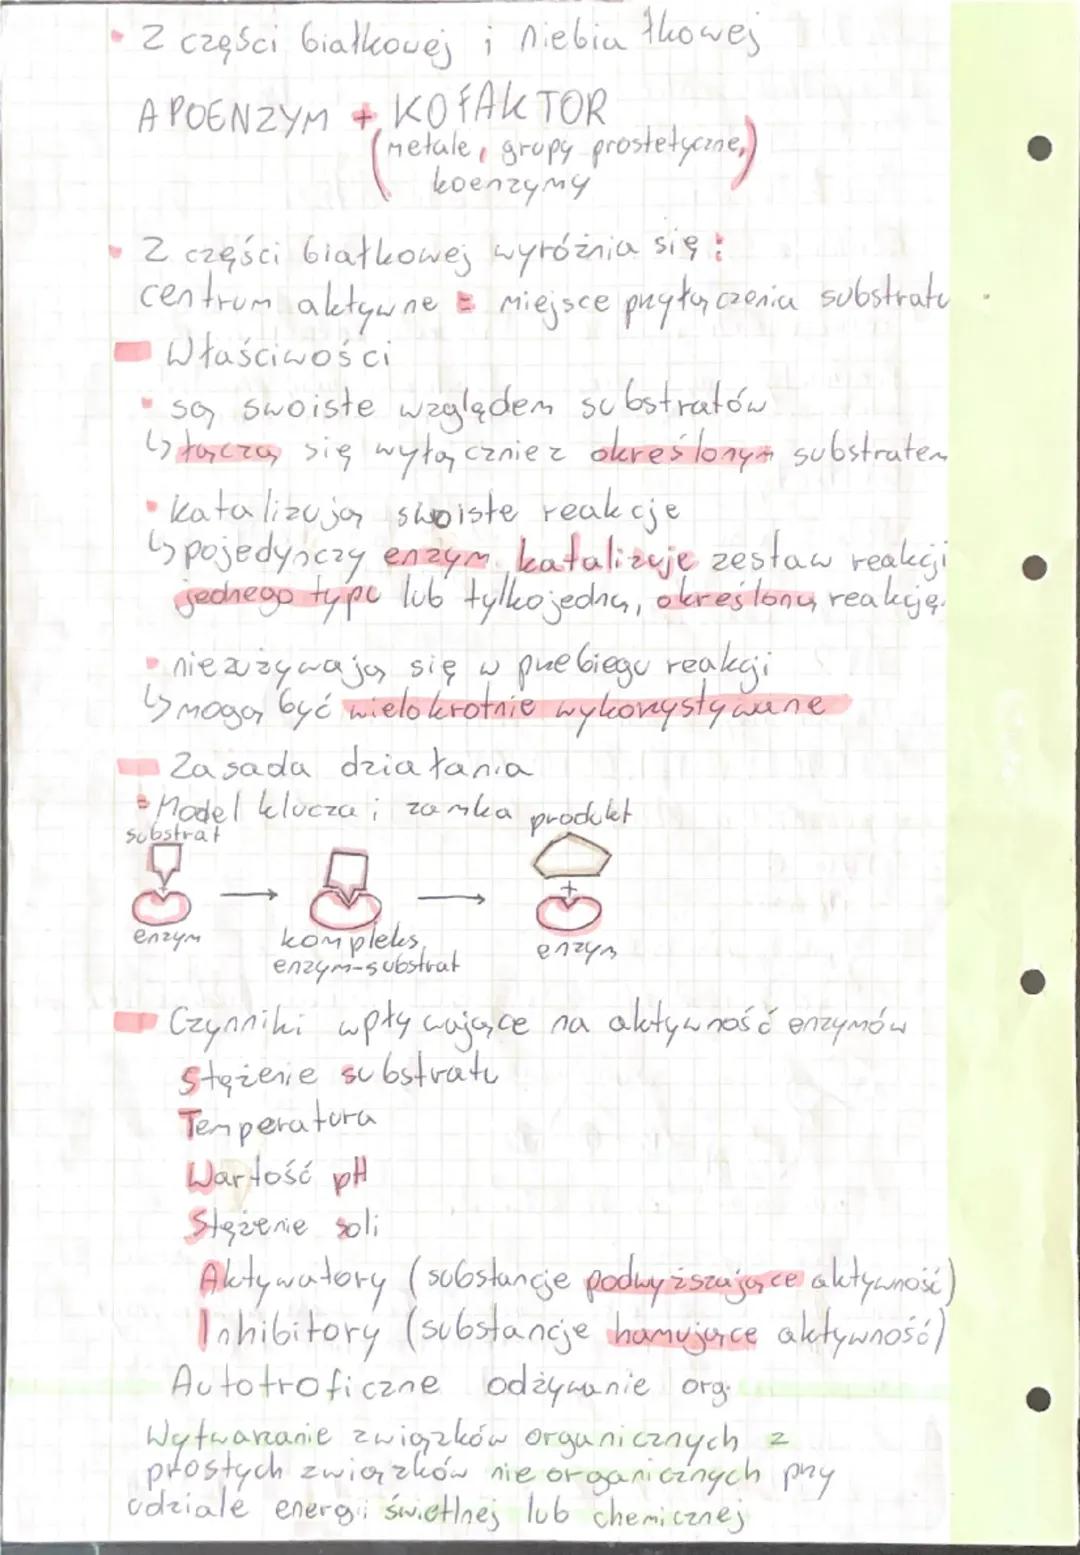 • Z części białkowej i niebiałkowej
APOENZYM + KOFAKTOR
(metale, grupy prostetyczne,)
koenzymy
• Z części białkowej wyróżnia się:
centrum aktywne = miejsce przyłączenia substratu
Właściwości
• są swoiste względem substratów
↳ łączą się wyłącznie z określonym substratem
• katalizują swoiste reakcje
↳ pojedynczy enzym katalizuje zestaw reakcji
jednego typu lub tylko jedną, określoną reakcję.
• nie zużywają się w przebiegu reakcji
↳ mogą być wielokrotnie wykorzystywane
Zasada działania
• Model klucza i zamka
substrat
produkt
+
enzym
kompleks
enzym-substrat
enzym
Czynniki wpływające na aktywność enzymów
Stężenie substratu
Temperatura
Wartość pH
Stężenie soli
Aktywatory (substancje podwyższające aktywność)
Inhibitory (substancje hamujące aktywność)
Autotroficzne odżywianie org.
Wytwarzanie związków organicznych z
prostych związków nieorganicznych przy
udziale energii świetlnej lub chemicznej